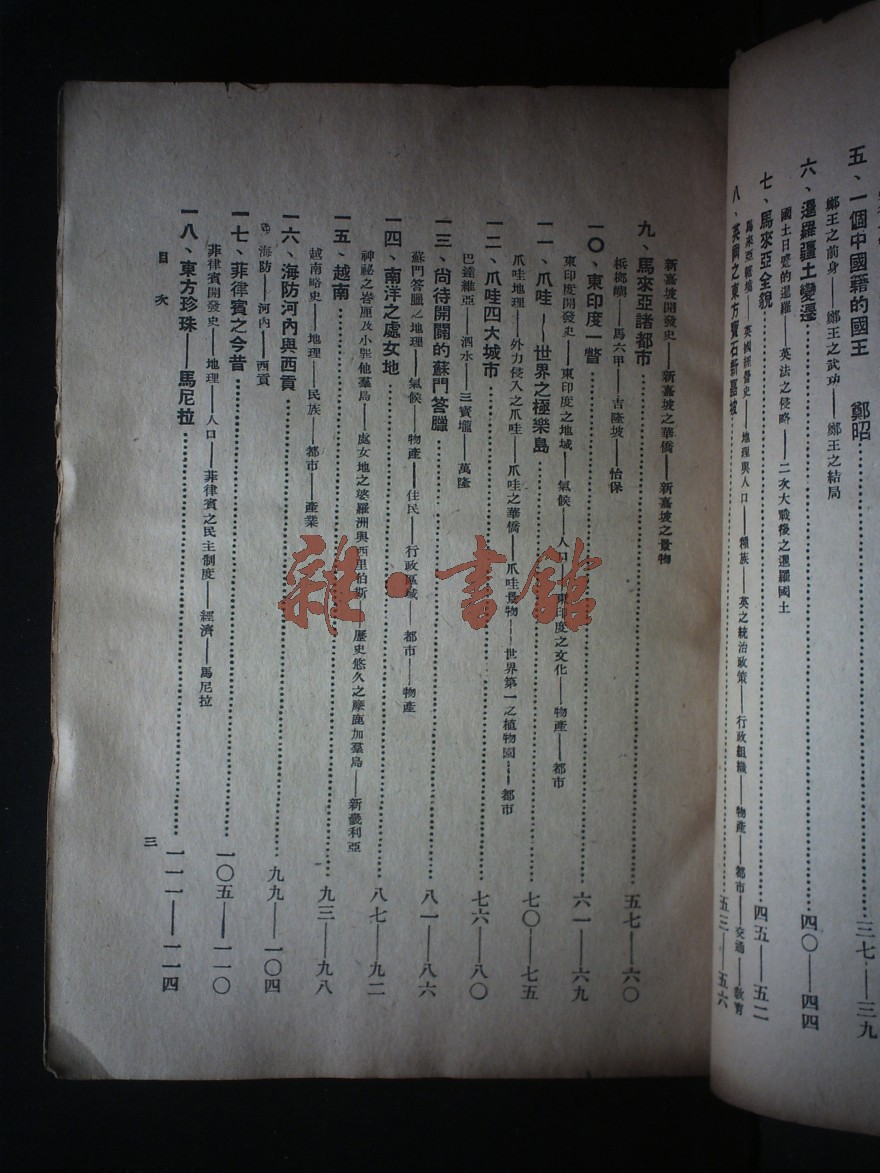 五、一個中國籍的國王 鄭昭……三七——三九
鄭王之前身——鄭王之武功——鄭王之結局
六、暹羅疆土變遷……四〇——四四
國土日蹙的暹羅——英法之侵略——二次大戰後之暹羅國土
七、馬來亞全貌……四五——五二
馬來亞輕塘——英國經營史——地理與人口——種族——英之統治政策——行政組織——物產——都市——交通——教育
八、英國之東方寶石新嘉坡……五三——五六
新嘉坡開發史——新嘉坡之華僑——新嘉坡之景物
九、馬來亞諸都市……五七——六〇
梹榔嶼——馬六甲——吉隆坡——怡保
一〇、東印度一瞥……六一——六九
東印度開發史——東印度之地域——氣候——人口——東印度之文化——物產——都市
一一、爪哇——世界之極樂島……七〇——七五
爪哇地理——外力侵入之爪哇——爪哇之華僑——爪哇景物——世界第一之植物園——都市
一二、爪哇四大城市……七六——八〇
巴達維亞——泗水——三寶壠——萬隆
一三、尚待開闢的蘇門答臘……八一——八六
蘇門答臘之地理——氣候——物產——住民——行政區域——都市——物產
一四、南洋之處女地……八七——九二
神祕之峇厘及小巽他羣島——處女地之婆羅洲與西里伯斯——歷史悠久之摩鹿加羣島——新畿利亞
一五、越南……九三——九八
越南略史——地理——民族——都市——產業
一六、海防河內與西貢……九九——一〇四
海防——河內——西貢
一七、菲律賓之今昔……一〇五——一一〇
菲律賓開發史——地理——人口——菲律賓之民主制度——經濟——馬尼拉
一八、東方珍珠——馬尼拉……一一一——一一四
目次
三
雜·書館